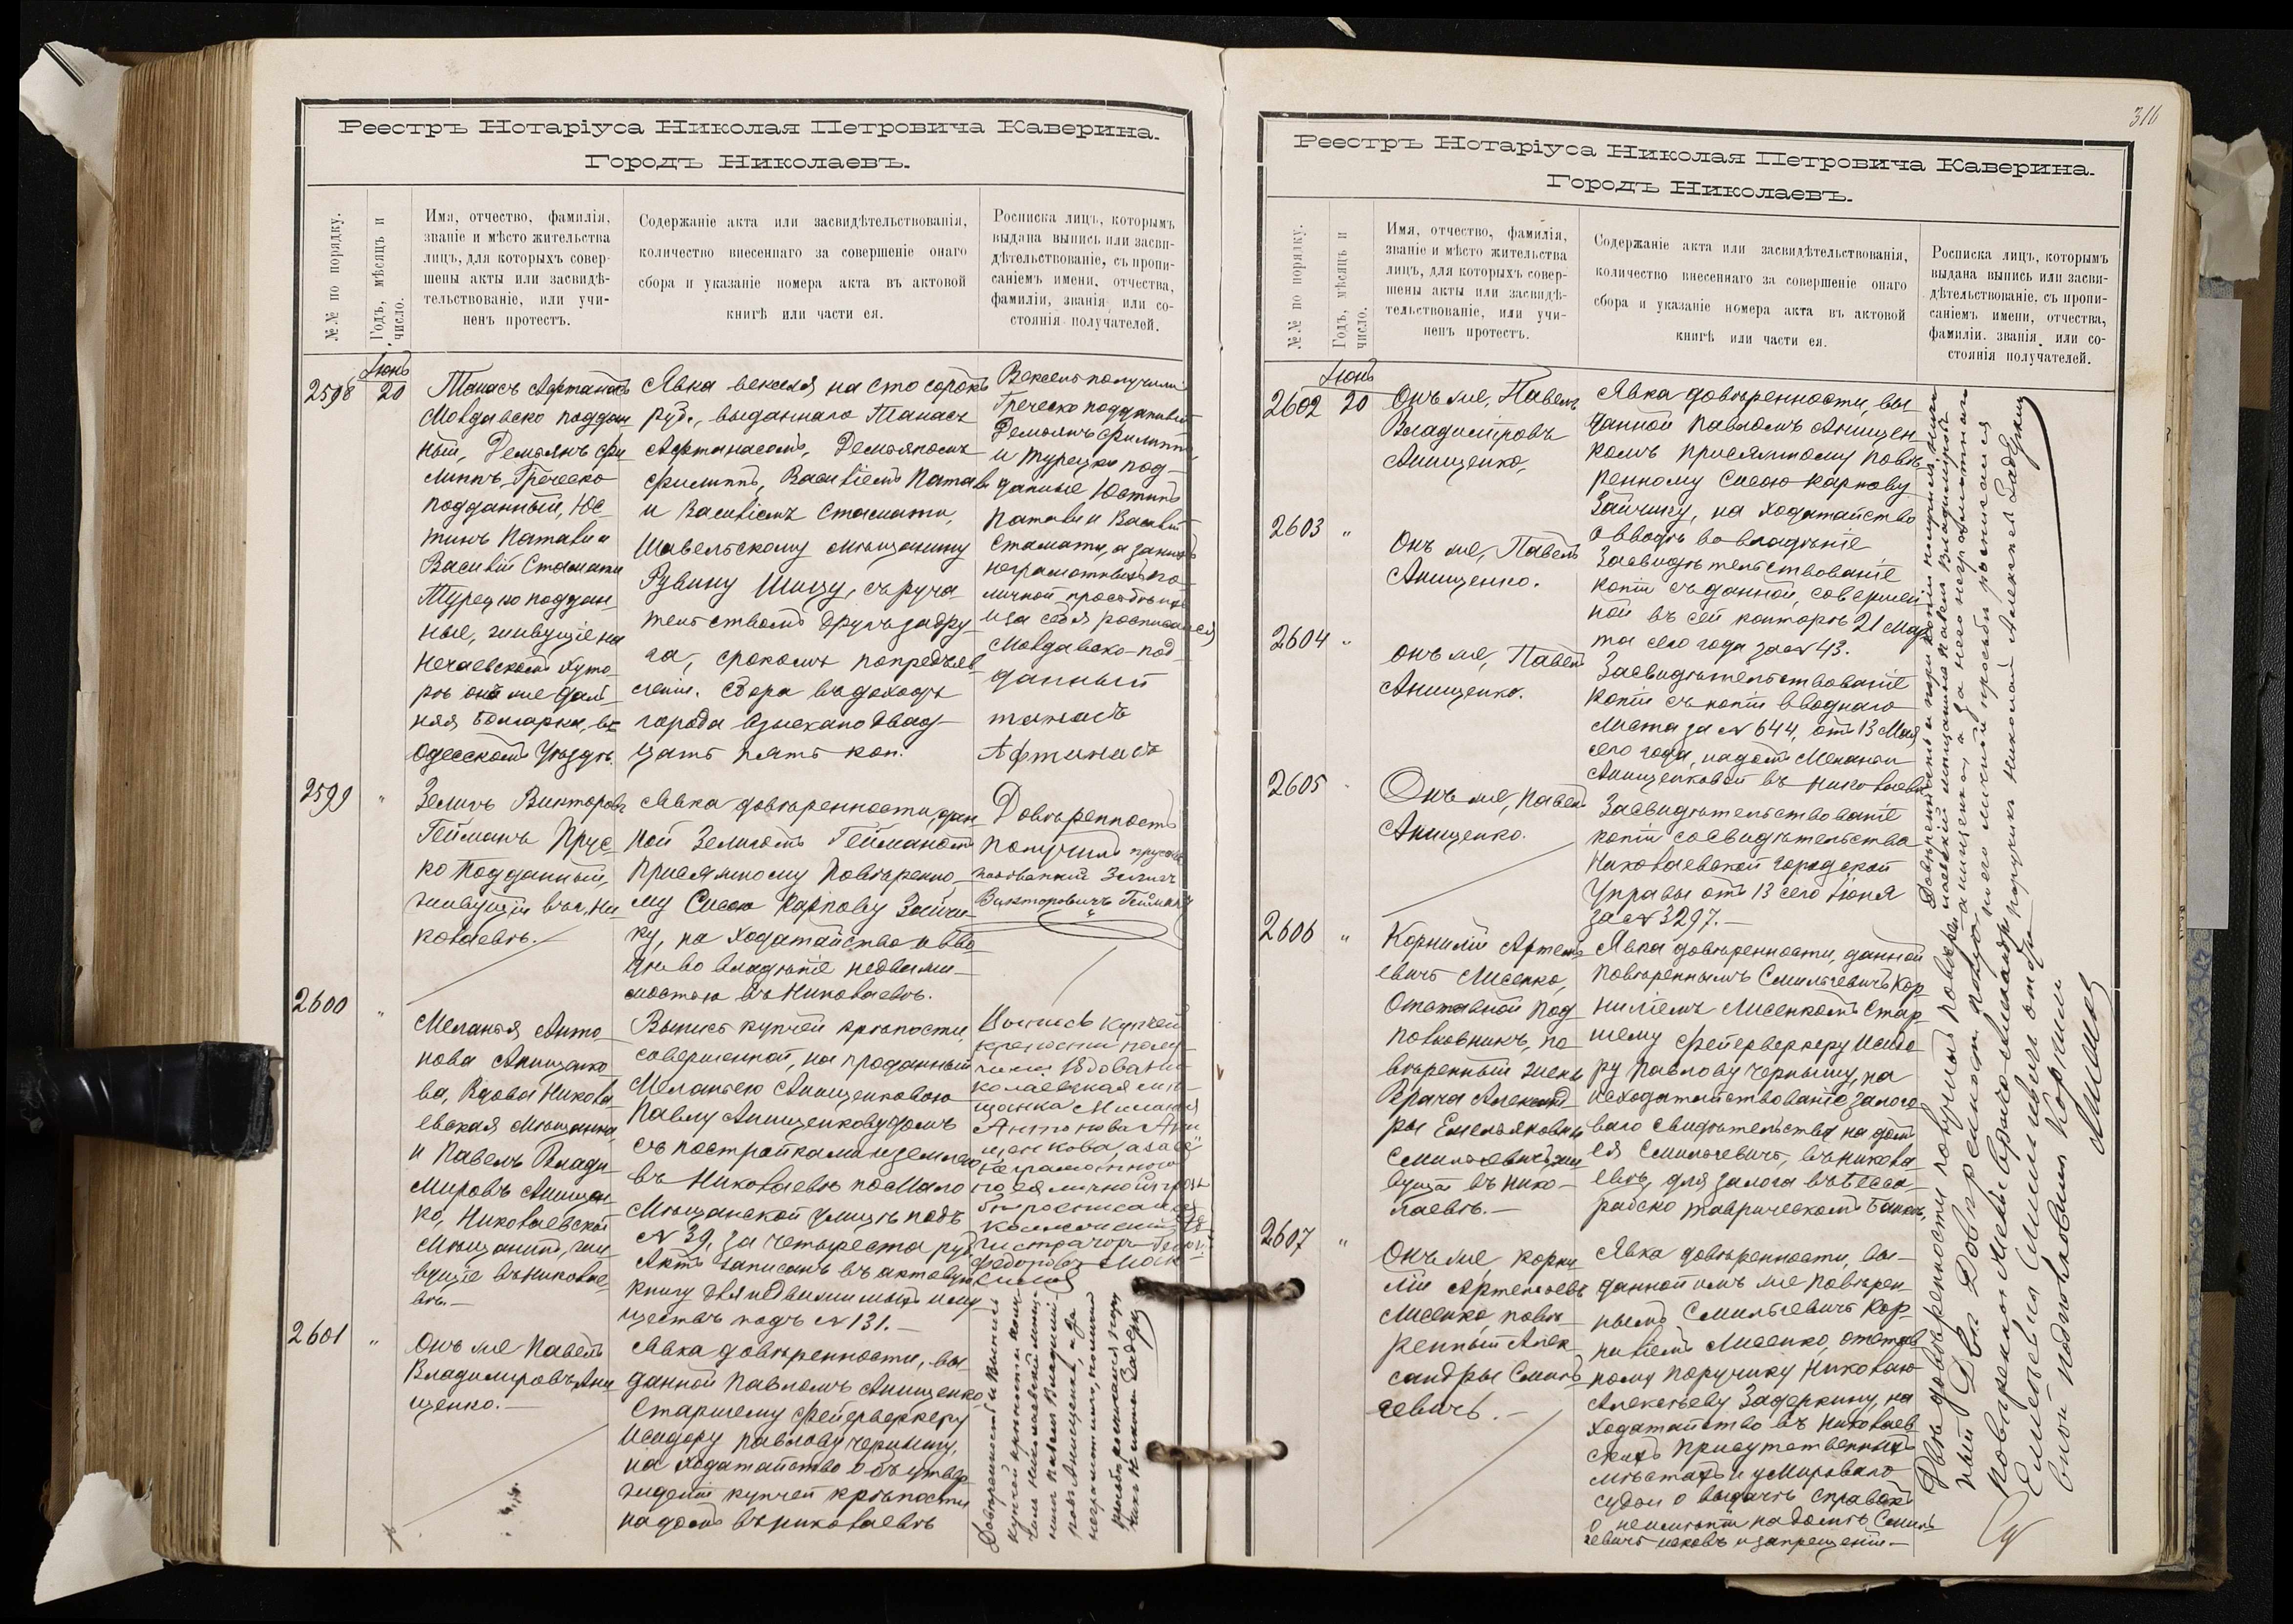 Реестръ Нотаріуса Николая Петровича Каверина.
Городъ Николаевъ.
№№ по порядку.
Годъ, мѣсяцъ и
число.
Имя, отчество, фамилія,
званіе и мѣсто жительства
лицъ, для которыхъ совер-
шены акты или засвидѣ-
тельствованіе, или учи-
ненъ протестъ.
Содержаніе акта или засвидѣтельствованія,
количество внесеннаго за совершеніе онаго
сбора и указаніе номера акта въ актовой
книгѣ или части ея.
Росписка лицъ, которымъ
выдана выпись или засви-
дѣтельствованіе, съ пропи-
саніемъ имени, отчества,
фамиліи, званія или со-
стоянія получателей.
Іюнь
2598
20
Танасъ Афтанасъ
Молдавско поддан
ный, Демьянъ Фи
липпъ, Греческо
подданный, Юс
тинъ Патави и
Василій Стамати
Турецко поддан
ные, живущіе на
Нечаевскомъ Хуто
рѣ онъ же Дал
няя Болгарка, въ
Одесскомъ Уѣздѣ.
Явка векселя на сто сорокъ
руб., выданнаго Танасъ
Афтанасомъ, Демьяномъ
Филиппъ, Василіемъ Патави
и Василіемъ Стамати,
Шавельскому мѣщанину
Рувину Шицу, съ руча
тельствомъ другъ за дру
га, срокомъ по предъяв
ленiи. Сбора въ доходъ
города взыскано двад
цать пять коп.
Вексель получили
Греческо подданный
Демьянъ Филиппъ
и Турецко под-
данные Юстинъ
Патави и Василій
Стамати, а за нихъ
неграмотныхъ по
личной просьбѣ ихъ
и за себя росписался
Молдавско-под
данный
танасъ
Афтинасъ
2599
"
Зелигъ Викторовъ
Гейманъ Прус
ко подданный,
живущій въ г. Ни
колаевѣ.
Явка довѣренности, дан
ной Зелигомъ Гейманомъ
Присяжному Повѣренно
му Сысою Карпову Зайчи
ку, на ходатайство о вво
дѣ во владѣніе недвижи
мостью въ Николаевѣ.
Довѣренность
получилъ прусско
подданный Зелигъ
Викторовичъ Гейманъ
2600
"
Меланья Анто
нова Анищенко
ва, Вдова Никола
евская мѣщанка,
и Павелъ Влади
міровъ Анищен
ко, Николаевскій
Мѣщанинъ, жи
вущіе въ Николае
вѣ.
Выпись купчей крѣпости,
совершенной, на проданный
Меланьею Анищенковою
Павлу Анищенкову домъ
съ постройками и землею
въ Николаевѣ по Мало
Мѣщанской улицѣ подъ
№ 39, за четыреста руб.
Актъ записанъ въ актовую
книгу для недвижимыхъ иму
ществъ подъ № 131.
Выпись купчей
крепости полу
чила Вдова Ни
колаевская мѣ
щанка Миланія
Антонова Ани
щенкова, а за неё
неграмотную
по ея личной прось
бѣ росписался
2601
"
Онъ же Павелъ
Владиміровъ Ани
щенко.
Явка довѣренности, вы
данной Павломъ Анищенко
Старшему Фейерверкеру
Исидору Павлову Черныму,
на ходатайство объ утвер
жденіи купчей крѣпости
на домъ въ Николаевѣ
Довѣренность и выпись
купчей крѣпости полу
чилъ Николаевскій мѣща
нинъ Павелъ Владимі
ровъ Анищенко, а за
неграмотнаго, по личной
просьбѣ росписался пору
чикъ Николай Задеркинъ
316
Реестръ Нотаріуса Николая Петровича Каверина.
Городъ Николаевъ.
№№ по порядку.
Годъ, мѣсяцъ и
число.
Имя, отчество, фамилія,
званіе и мѣсто жительства
лицъ, для которыхъ совер-
шены акты или засвидѣ-
тельствованіе, или учи-
ненъ протестъ.
Содержаніе акта или засвидѣтельствованія,
количество внесеннаго за совершеніе онаго
сбора и указаніе номера акта въ актовой
книгѣ или части ея.
Росписка лицъ, которымъ
выдана выпись или засви-
дѣтельствованіе, съ пропи-
саніемъ имени, отчества,
фамиліи, званія, или со-
стоянія получателей.
Іюнь
2602
20
Онъ же, Павелъ
Владиміровъ
Анищенко.
Явка довѣренности, вы
данной Павломъ Анищен
комъ присяжному повѣ
ренному Сысою Карпову
Зайчику, на ходатайство
о вводѣ во владѣніе
2603
"
Онъ же, Павелъ
Анищенко.
Засвидѣтельствованіе
копіи съ данной, совершен
ной въ сей конторѣ 21 Мар
та сего года за № 43.
2604
"
Онъ же, Павелъ
Анищенко.
Засвидѣтельствованіе
копіи съ копіи вводнаго
листа за № 644, отъ 13 Мая
сего года, на домъ Меланьи
Анищенковой въ Николаевѣ
2605
"
Онъ же, Павелъ
Анищенко.
Засвидѣтельствованіе
копіи со свидѣтельства
Николаевской городской
Управы отъ 13 сего Іюня
за № 3297.
2606
"
Корнилій Артемь
евичъ Лисенко,
Отставной Под
полковникъ, по
вѣренный жены
Врача Александ
ры Емельяновны
Смильгевичъ, жи
вущій въ Нико-
лаевѣ.
Явка довѣренности, данной
повѣреннымъ Смильгевичъ Кор
ниліемъ Лисенкомъ Стар
шему Фейерверкеру Исидо
ру Павлову Черныму, на
исходатайствованіе залого
ваго свидѣтельства на домъ
ея Смильгевичъ, въ Никола
евѣ, для залога въ Бесса-
рабско Таврическомъ Банкѣ.
2607
"
Онъ же, Корни
лій Артемьевъ
Лисенко повѣ
ренный Алек
сандры Смиль
гевичъ.
Явка довѣренности, вы-
данной имъ же повѣрен
нымъ Смильгевичъ Кор
ниліемъ Лисенко, отстав
ному поручику Николаю
Алексѣеву Задеркину, на
ходатайство въ Николаев
скихъ Присутственныхъ
мѣстахъ и у Мироваго
судьи о выдачѣ справокъ
о неимѣніи на домѣ Смиль
гевичъ исковъ и запрещеній.